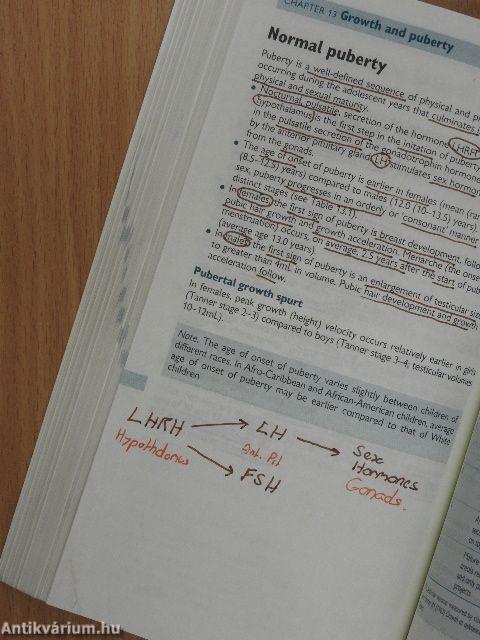 CHAPTER 13 Growth and puberty
Normal puberty
Puberty is a well-defined sequence of physical and
occurring during the adolescent years that culminates
physical and sexual maturity.
• Nocturnal, pulsatile, secretion of the hormone LHRH
hypothalamus) is the first step in the initation of puberty
in the pulsatile secretion of the gonadotrophin hormone
by the anterior pituitary gland. LH stimulates sex hormone
from the gonads.
• The age of onset of puberty is earlier in females (mean
(8.5–12.5) years) compared to males (12.0 (10–13.5) years).
sex, puberty progresses in an orderly or 'consonant' manner
distinct stages (see Table 13.1).
• In females the first sign of puberty is breast development,
pubic hair growth and growth acceleration. Menarche (the onset
menstruation) occurs, on average, 2.5 years after the start of
(average age 13.0 years).
• In males the first sign of puberty is an enlargement of testicular
to greater than 4mL in volume. Pubic hair development and growth
acceleration follow.
Pubertal growth spurt
In females, peak growth (height) velocity occurs relatively earlier in girls
(Tanner stage 2–3) compared to boys (Tanner stage 3–4; testicular volumes
10–12mL).
Note. The age of onset of puberty varies slightly between children of
different races. In Afro-Caribbean and African-American children, average
age of onset of puberty may be earlier compared to that of White
children.
LHRH → LH → Sex
Hormones
Ant. Pit
Gonads.
FSH
Antikvárium.hu